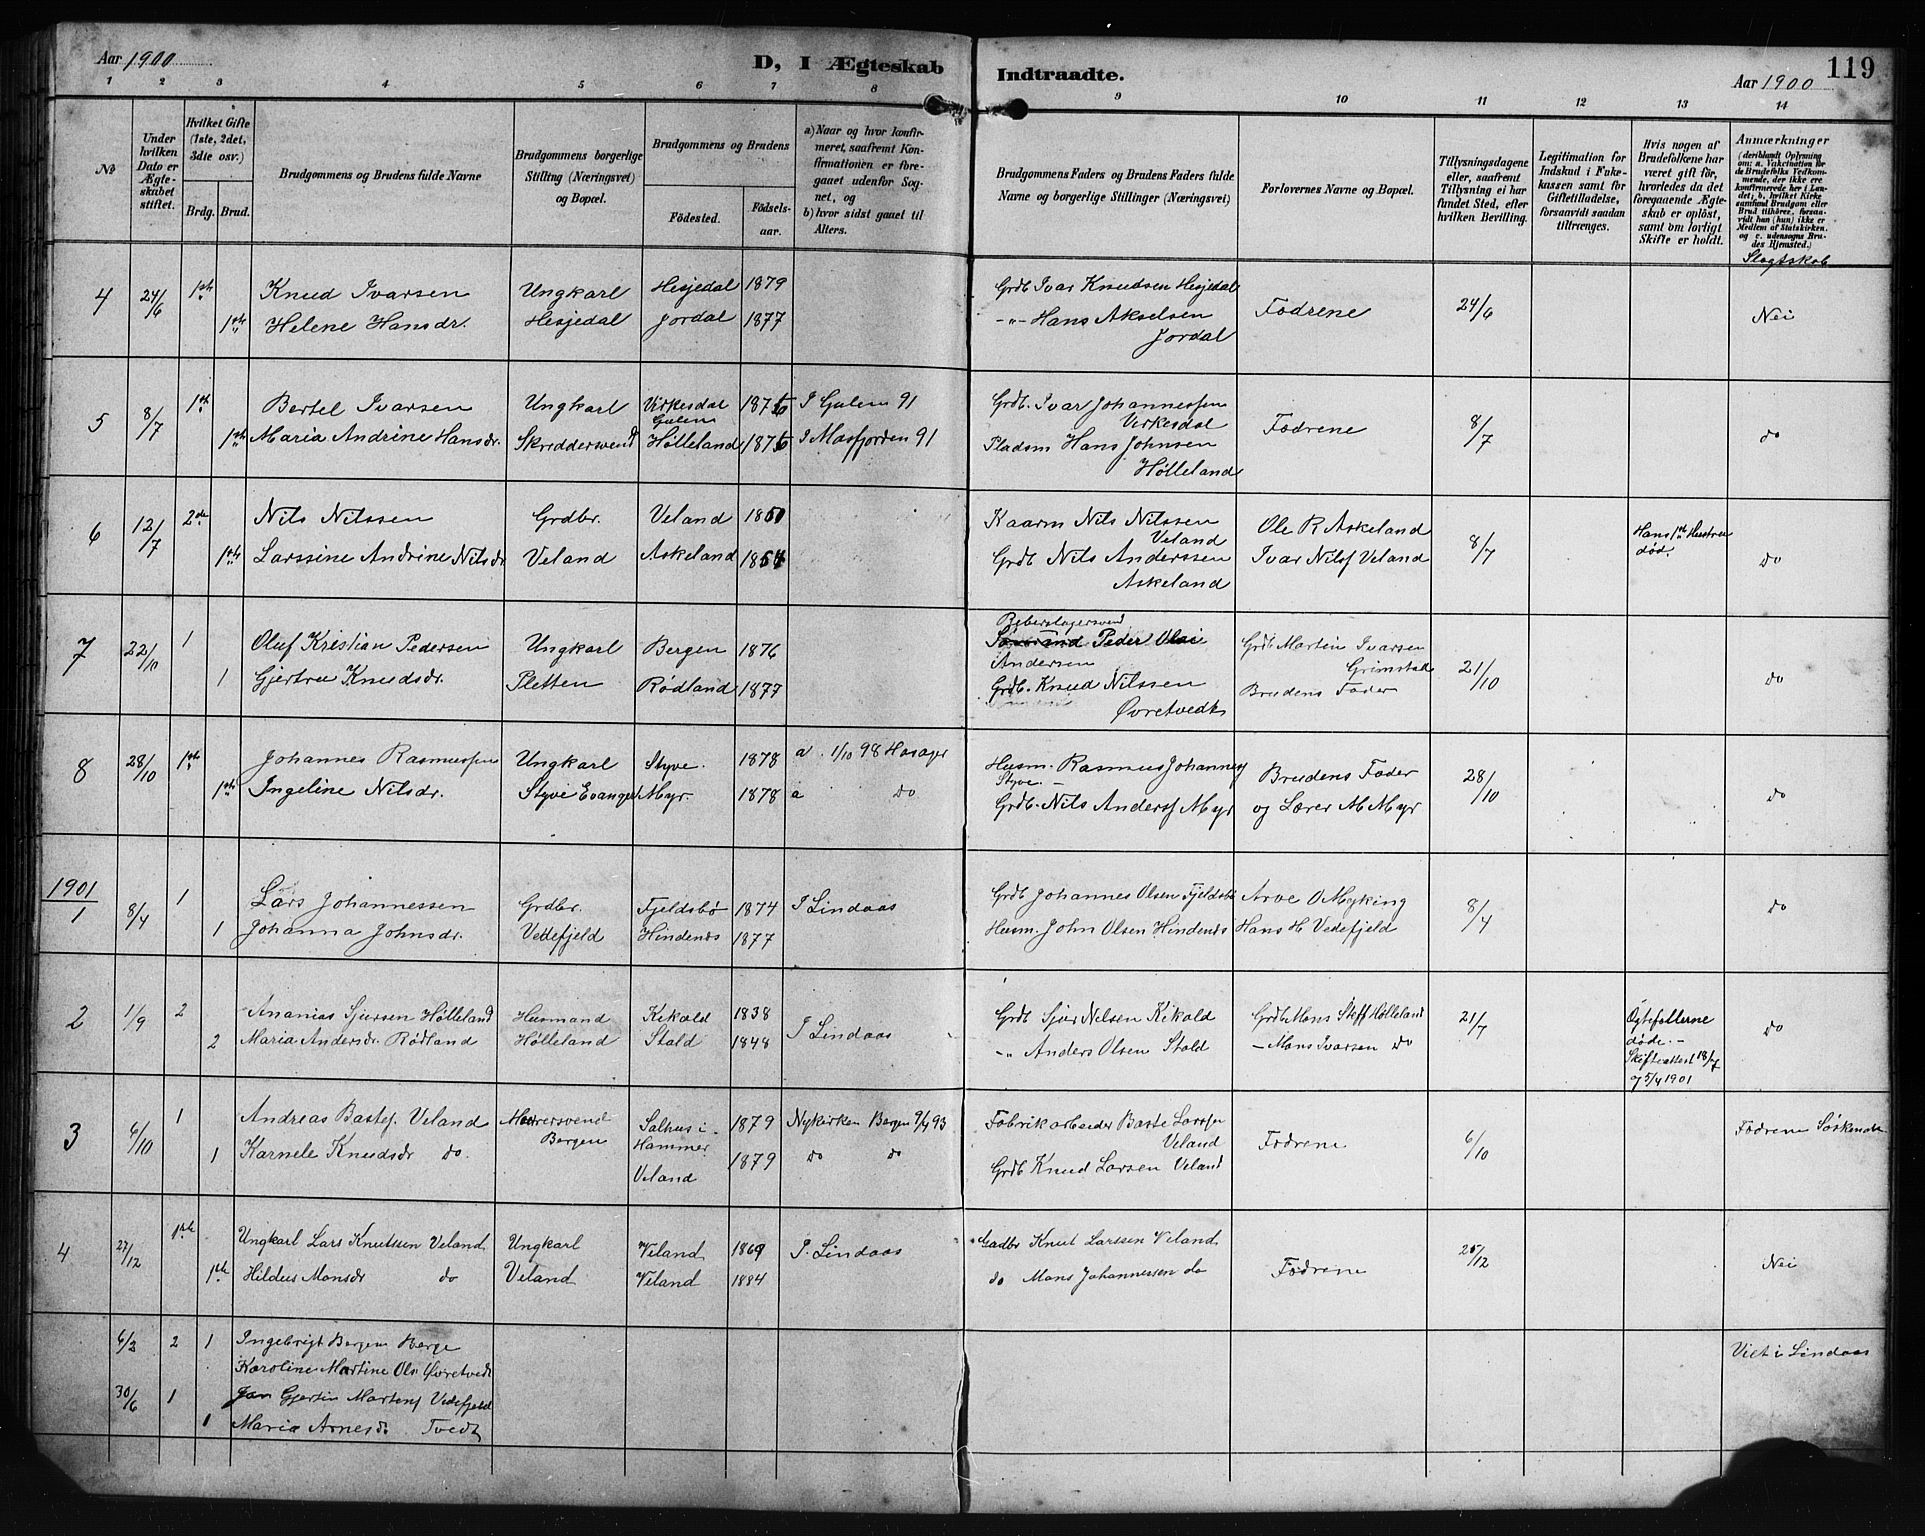 Aar 1900
D, I Ægteskab
Indtraadte.
Aar 1900
119
1 2 3 4 5 6 7 8 9 10 11 12 13 14
No
Under hvilken Dato er Ægteskabet stiftet.
Hvilket Gifte (1ste, 2det, 3die osv.)
Brdg. Brud.
Brudgommens og Brudens fulde Navne
Brudgommens borgerlige Stilling (Næringsvei) og Bopæl.
Brudgommens og Brudens
Fødested.
Fødselsaar.
a) Naar og hvor konfirmeret, saafremt Konfirmationen er foregaaet udenfor Sognet, og
b) hvor sidst gaaet til Alters.
Brudgommens Faders og Brudens Faders fulde Navne og borgerlige Stillinger (Næringsvei)
Forlovernes Navne og Bopæl.
Tillysningsdagene eller, saafremt Tillysning ei har fundet Sted, efter hvilken Bevilling.
Legitimation for Indskud i Enkekassen samt for Giftetilladelse, forsaavidt saadan tiltrænges.
Hvis nogen af Brudefolkene har været gift før, hvorledes da det foregaaende Ægteskab er opløst, samt om lovligt Skifte er holdt.
Anmærkninger
(deriblandt Oplysning om: a. Vakcination for de Brudefolks Vedkommende, der ikke ere konfirmerede her i Landet; b. hvilket Kirkesamfund Brudgom eller Brud tilhører, forsaavidt han (hun) ikke er Medlem af Statskirken. og c. udensogns Brudes Hjemsted.)
Slægtskab
4 24/6 1ste Knud Ivarsen Ungkarl Hesjedal 1879 Grdb Ivar Knudsen Hesjedal Fædrene 24/6 Nei
1ste Helene Hansdr. Hesjedal Jordal 1877 -"- Hans Akselsen
Jordal
5 8/7 1ste Bertel Ivarsen Ungkarl Virkesdal Gulen 1876 I Gulen 91 Grdb. Ivar Johannessen
Virkesdal Fædrene 8/7 do
1ste Maria Andrine Hansdr. Skræddersvend Hølleland 1876 I Masfjorden 91 Pladsm Hans Johnsen
Hølleland
6 12/7 2de Nils Nilssen Grdbr. Veland 1850 Kaarm Nils Nilssen
Veland Ole R Askeland 8/7 Hans 1ste Hustru død. do
1ste Larssine Andrine Nilsdr Veland Askeland 1854 Grdb Nils Anderssen
Askeland Ivar Nilss Veland
7 22/10 1 Oluf Kristian Pedersen Ungkarl Bergen 1876 Peder Olai
Andersen Grdb Martin Ivarsen
Grimstad 21/10 do
1 Gjertru Knudsdr. Pletten Rødland 1877 Grdb. Knud Nilssen
Øvretvedt Brudens Fader
8 28/10 1ste Johannes Rasmussen Ungkarl Styve. 1878 a. 1/10 98 Hosager Husm. Rasmus Johanness
Styve. Brudens Fader 28/10 do
1ste Ingeline Nilsdr. Styve Evanger Myr. 1878 a do Grdb. Nils Anderss Myr og Lærer M Myr
1901
1 8/4 1 Lars Johannessen Grdbr. Fjeldsbø 1874 I Lindaas Grdb Johannes Olsen Fjeldsbø Arve O Myking 8/4 do
1 Johanna Johnsdr. Vedefjeld Hindenes 1877 Husm. John Olsen Hindenes Hans H Vedefjeld
2 1/9 2 Ananias Sjursen Hølleland Husmand Kikald 1838 Grdb Sjur Nelsen Kikald Grdb Mons Steff Hølleland 21/7 Ægtefællerne døde. - Skifteattest 18/7 og 5/4 1901 do
2 Maria Andersdr. Rødland Hølleland Stald 1848 I Lindaas -"- Anders Olsen Stald - Mons Ivarsen do
3 6/10 1 Andreas Bastes. Veland Murersvend
Bergen Salhus i
Hammer 1879 Nykirken Bergen 9/4 93 Fabrikarbeider Baste Larssen
Veland Fædrene 6/10 Fædrene Søskende
1 Karnele Knudsdr do. Veland 1879 do do Grdb Knud Larsen Veland
4 27/12 1ste Ungkarl Lars Knutssen Veland Ungkarl Veland 1869 I. Lindaas Gadbr Knut Larssen Veland Fædrene 25/12 Nei
1ste Hildus Monsdr do Veland Veland 1884 do Mons Johannessen do
6/2 2 1 Ingebrigt Bergem Berge Viet i Lindaas
Karoline Martine Olsd Øvretvedt
30/6 1 Jan Gjertin Martens Vedefjeld
1 Maria Arnesdr Tvedt